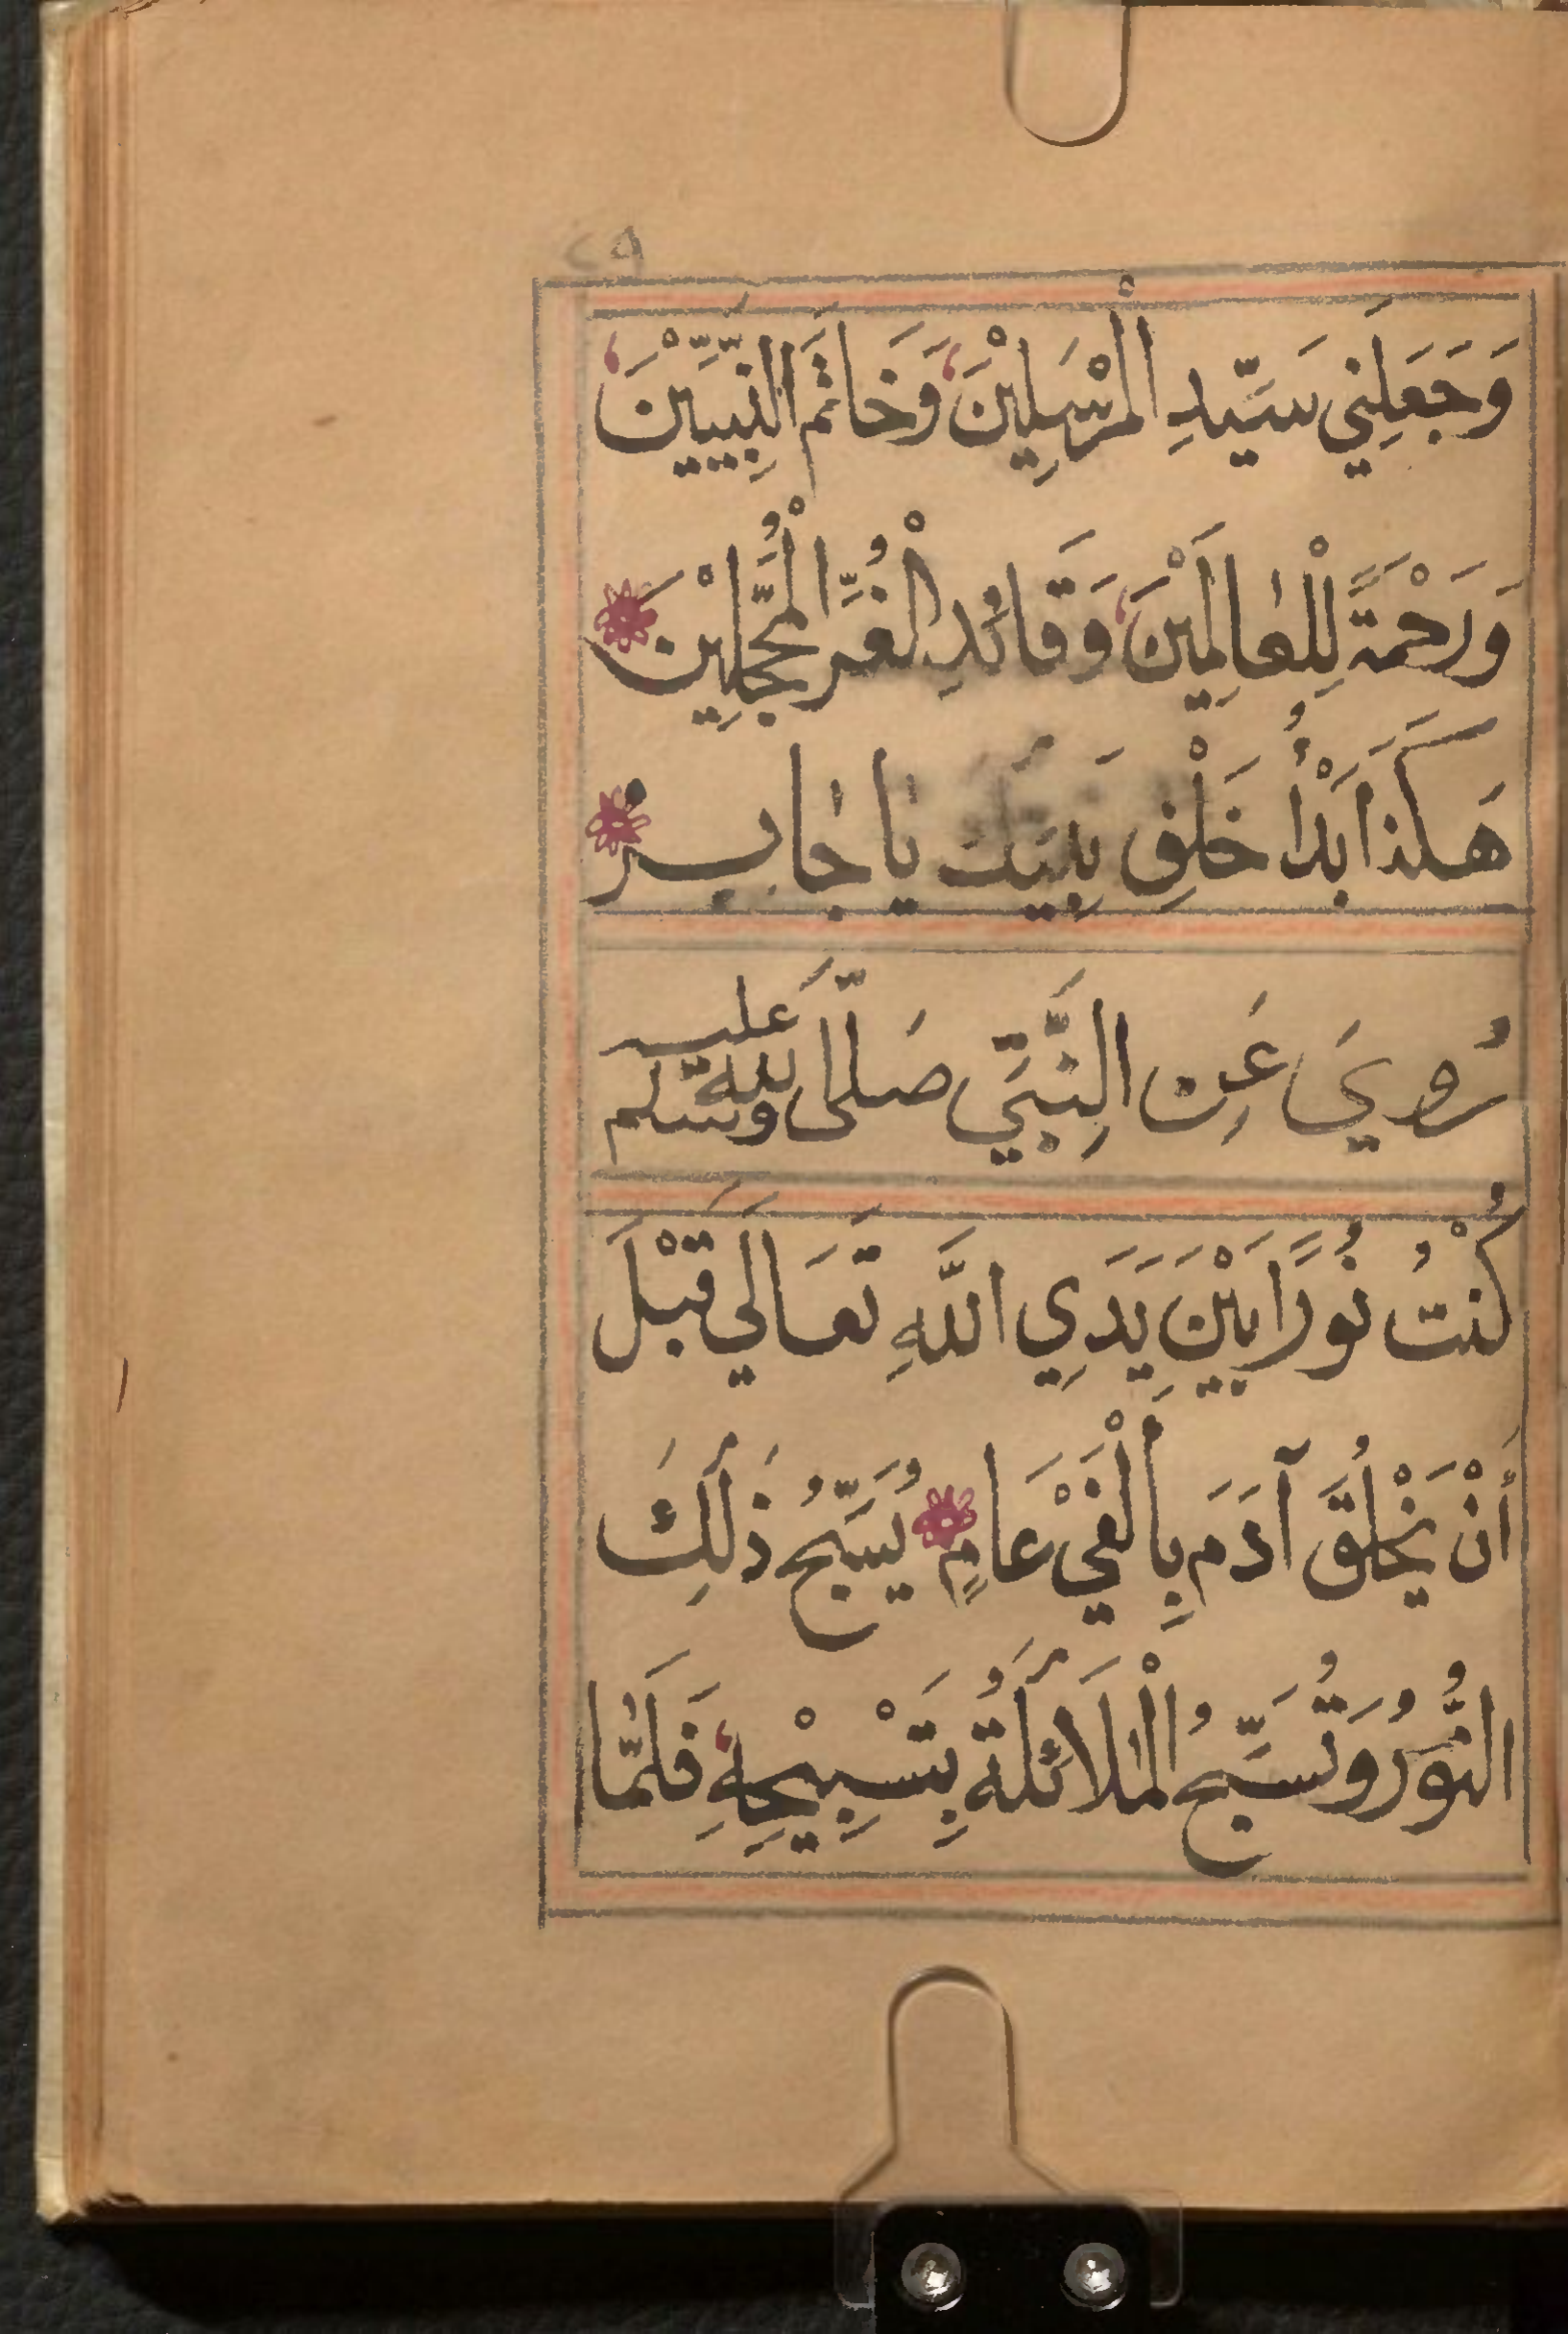 ٢٩
وَجَعَلَنِي سَيِّدِ الْمُرْسَلِيْنَ وَخَاتَمَ النَّبِيِّيْنَ
وَرَحْمَةً لِلْعَالَمِيْنَ وَقَائِدِ الْغُرِّ الْمُحَجَّلِيْنَ
هَكَذَا بَدْأُ خَلْقِ نَبِيِّكَ يَا جَابِرُ
رُوِيَ عَنِ النَّبِيِّ صَلَّى اللّٰهُ عَلَيهِ وسَلم
كُنْتُ نُورًا بَيْنَ يَدَيِ اللَّهِ تَعَالَى قَبْلَ
أَنْ يَخْلُقَ آدَمَ بِأَلْفَيْ عَامٍ يُسَبِّحُ ذَلِكَ
النُّوْرُ وَتُسَبِّحُ الْمَلَائِكَةُ بِتَسْبِيْحِهِ فَلَمَّا